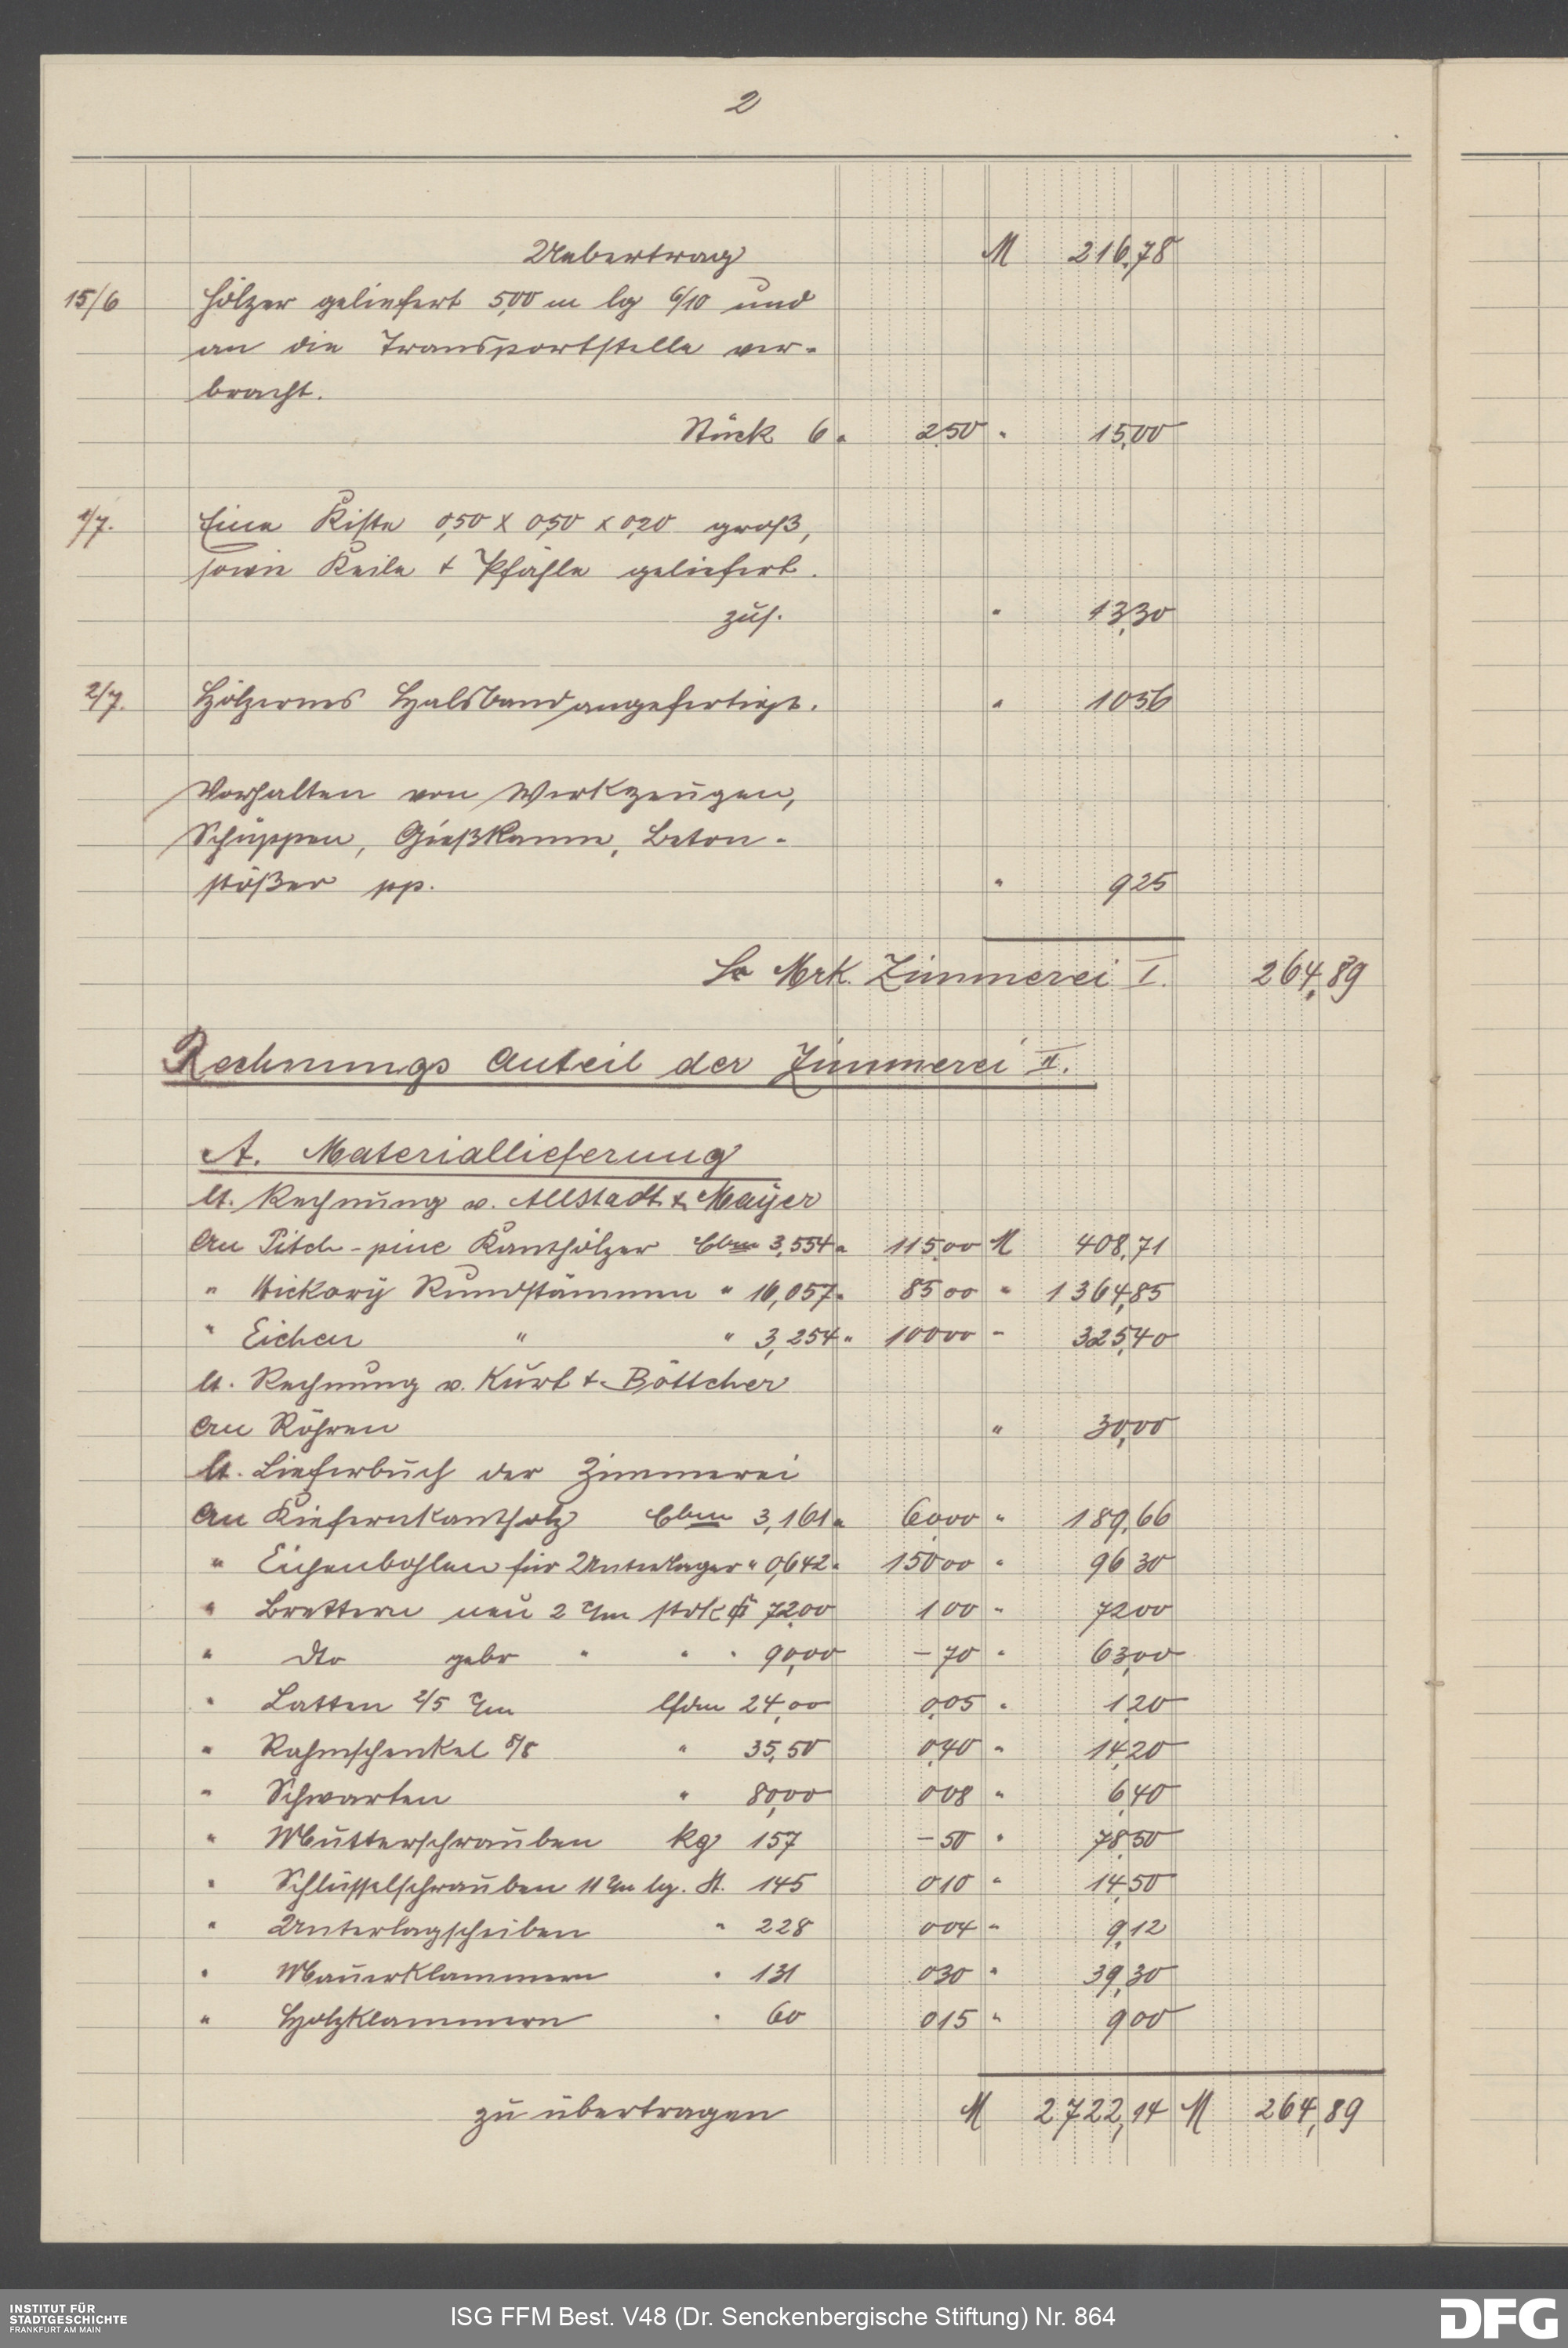 2
Uebertrag M 216,78
15/6 Hölzer geliefert 5,00 m lg 6/10 und
an die Transportstelle ver-
bracht.
Stück 6 " 2,50 " 15,00
1/7. Eine Kiste 0,50 x 0,50 x 0,20 groß,
sowie Keile + Pfähle geliefert.
zus. " 13,30
2/7. Hölzernes Halsband angefertigt. " 10 56
Vorhalten von Werkzeugen,
Schüppen, Gießkanne, Beton-
stößer pp. " 9 25
Sa Mrk. Zimmerei I. 264,89
Rechnungs Anteil der Zimmerei II.
A. Materiallieferung
lt. Rechnung v. Allstadt & Mayer
An Pitch-pine Kanthölzer Cbm 3,554 " 115,00 M 408,71
" Hickory Rundstämmen " 16,057 " 85 00 " 1 364,85
" Eichen " " 3,254 " 100 00 " 325,40
lt. Rechnung v. Kurt + Böttcher
An Röhren " 30,00
lt. Lieferbuch der Zimmerei
An Kiefernkantholz Cbm 3,161 " 60 00 " 189,66
" Eichenbohlen für Unterlager " 0,642 " 150 00 " 96 30
" Brettern neu 2 c/m stark 72,00 1 00 " 72 00
" dto gebr " " " 90,00 - 70 " 63,00
" Latten 2/5 c/m lfdm 24,00 0,05 " 1,20
" Rahmschenkel 8/8 " 35,50 0,40 " 14,20
" Schwarten " 80,00 0 08 " 6,40
" Mutterschrauben kg 157 - 50 " 78,50
" Schlüsselschrauben 11 c/m lg. St. 145 0 10 " 14,50
" Unterlagscheiben " 228 0 04 " 9,12
" Mauerklammern " 131 0 30 " 39,30
" Holzklammern " 60 0 15 " 9 00
zu übertragen M 2722,14 M 264,89
INSTITUT FÜR
STADTGESCHICHTE
FRANKFURT AM MAIN
ISG FFM Best. V48 (Dr. Senckenbergische Stiftung) Nr. 864
DFG